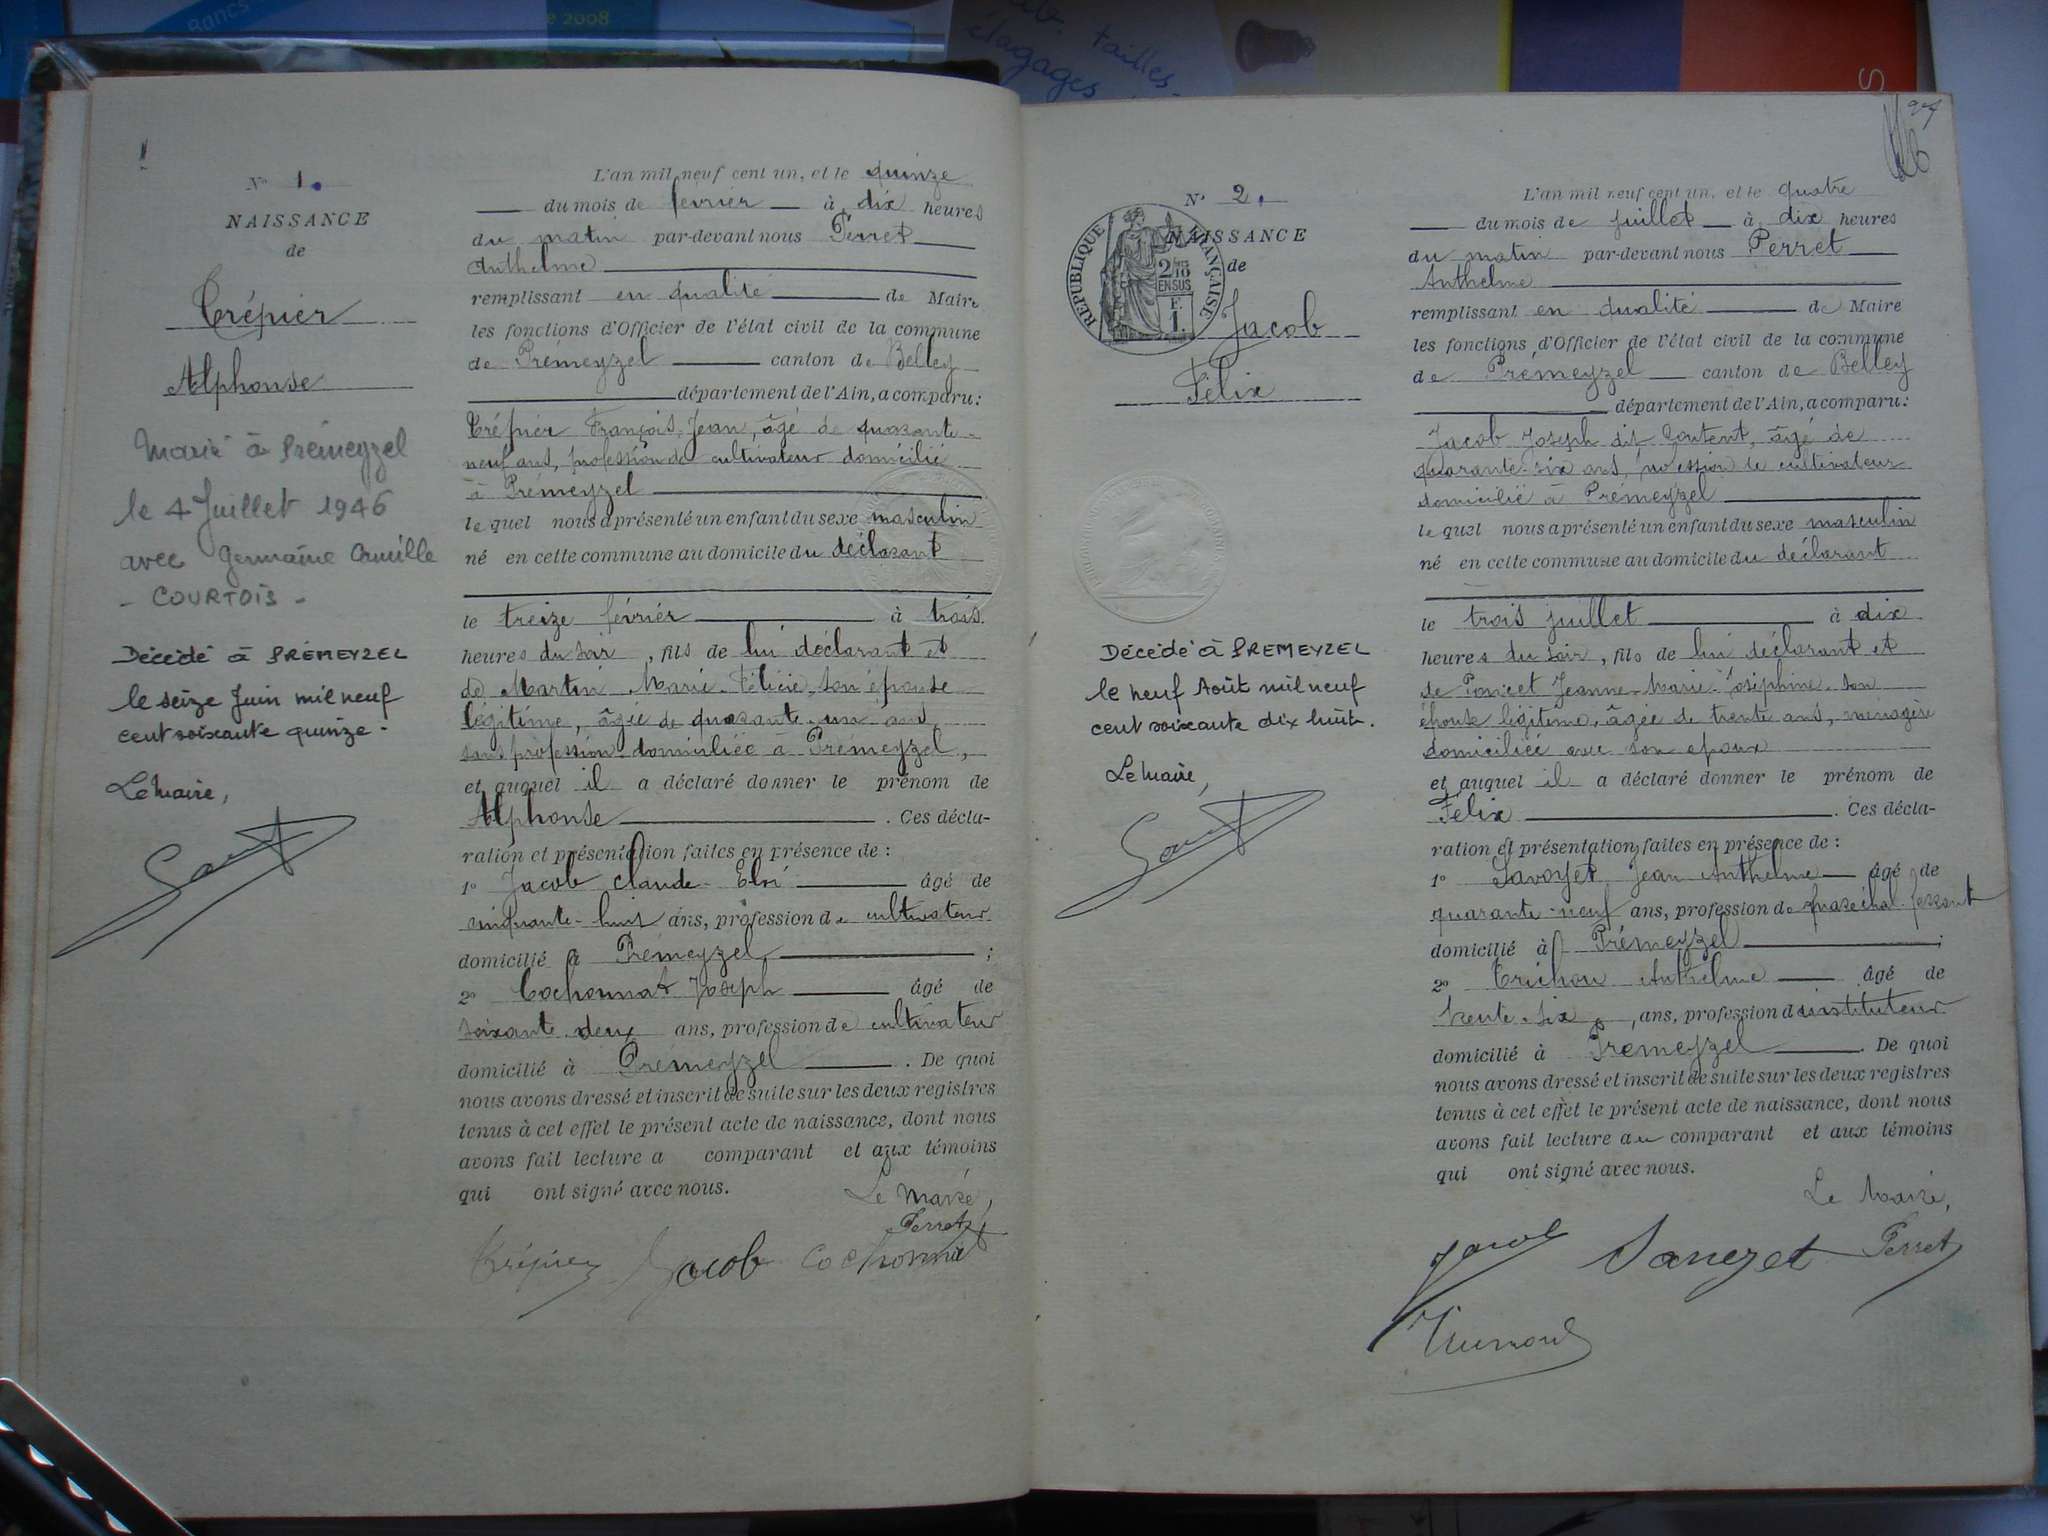 Bancs
e 2008
tailles
élagages
S
N° 1.
NAISSANCE
de
Trépier
Alphonse
Marié à Prémeyzel
le 4 Juillet 1946
avec Germaine Camille
- COURTOIS -
Décédé à PREMEYZEL
le seize Juin mil neuf
cent soixante quinze -
Le Maire,
L'an mil neuf cent un, et le quinze
du mois de février à dix heures
du matin par-devant nous Perret
Anthelme
remplissant en qualité de Maire
les fonctions d'Officier de l'état civil de la commune
de Prémeyzel canton de Belley
département de l'Ain, a comparu:
Trépier François Jean, âgé de quarante-
neuf ans, profession de cultivateur domicilié
à Prémeyzel
le quel nous a présenté un enfant du sexe masculin
né en cette commune au domicile du déclarant
le treize février à trois
heures du soir, fils de lui déclarant et
de Martin Marie Félicie, son épouse
légitime, âgée de quarante-un ans,
sans profession domiciliée à Prémeyzel,
et auquel il a déclaré donner le prénom de
Alphonse. Ces décla-
ration et présentation faites en présence de :
1° Jacob Claude âgé de
cinquante-huit ans, profession de cultivateur
domicilié à Prémeyzel ;
2° Cochonnat Joseph âgé de
soixante-deux ans, profession de cultivateur
domicilié à Prémeyzel. De quoi
nous avons dressé et inscrit de suite sur les deux registres
tenus à cet effet le présent acte de naissance, dont nous
avons fait lecture a comparant et aux témoins
qui ont signé avec nous.
Le Maire,
Perret
Trépier Jacob Cochonnat
97
N° 2.
REPUBLIQUE FRANÇAISE
2/10
EN SUS
F
1.
NAISSANCE
de
Jacob
Félix
Décédé à PREMEYZEL
le neuf Août mil neuf
cent soixante dix huit.
Le Maire,
L'an mil neuf cent un, et le quatre
du mois de juillet à dix heures
du matin par-devant nous Perret
Anthelme
remplissant en qualité de Maire
les fonctions d'Officier de l'état civil de la commune
de Prémeyzel canton de Belley
département de l'Ain, a comparu:
Jacob Joseph dit Content, âgé de
quarante-six ans, profession de cultivateur
domicilié à Prémeyzel
le quel nous a présenté un enfant du sexe masculin
né en cette commune au domicile du déclarant
le trois juillet à dix
heures du soir, fils de lui déclarant et
de Poncet Jeanne-Marie-Joséphine son
épouse légitime, âgée de trente ans, ménagère
domiciliée avec son époux
et auquel il a déclaré donner le prénom de
Félix. Ces décla-
ration et présentation faites en présence de :
1° Jean Anthelme âgé de
quarante-neuf ans, profession de maréchal-ferrant
domicilié à Prémeyzel ;
2° Anthelme âgé de
trente-six, ans, profession d'instituteur
domicilié à Prémeyzel. De quoi
nous avons dressé et inscrit de suite sur les deux registres
tenus à cet effet le présent acte de naissance, dont nous
avons fait lecture au comparant et aux témoins
qui ont signé avec nous.
Le Maire,
Jacob Perret